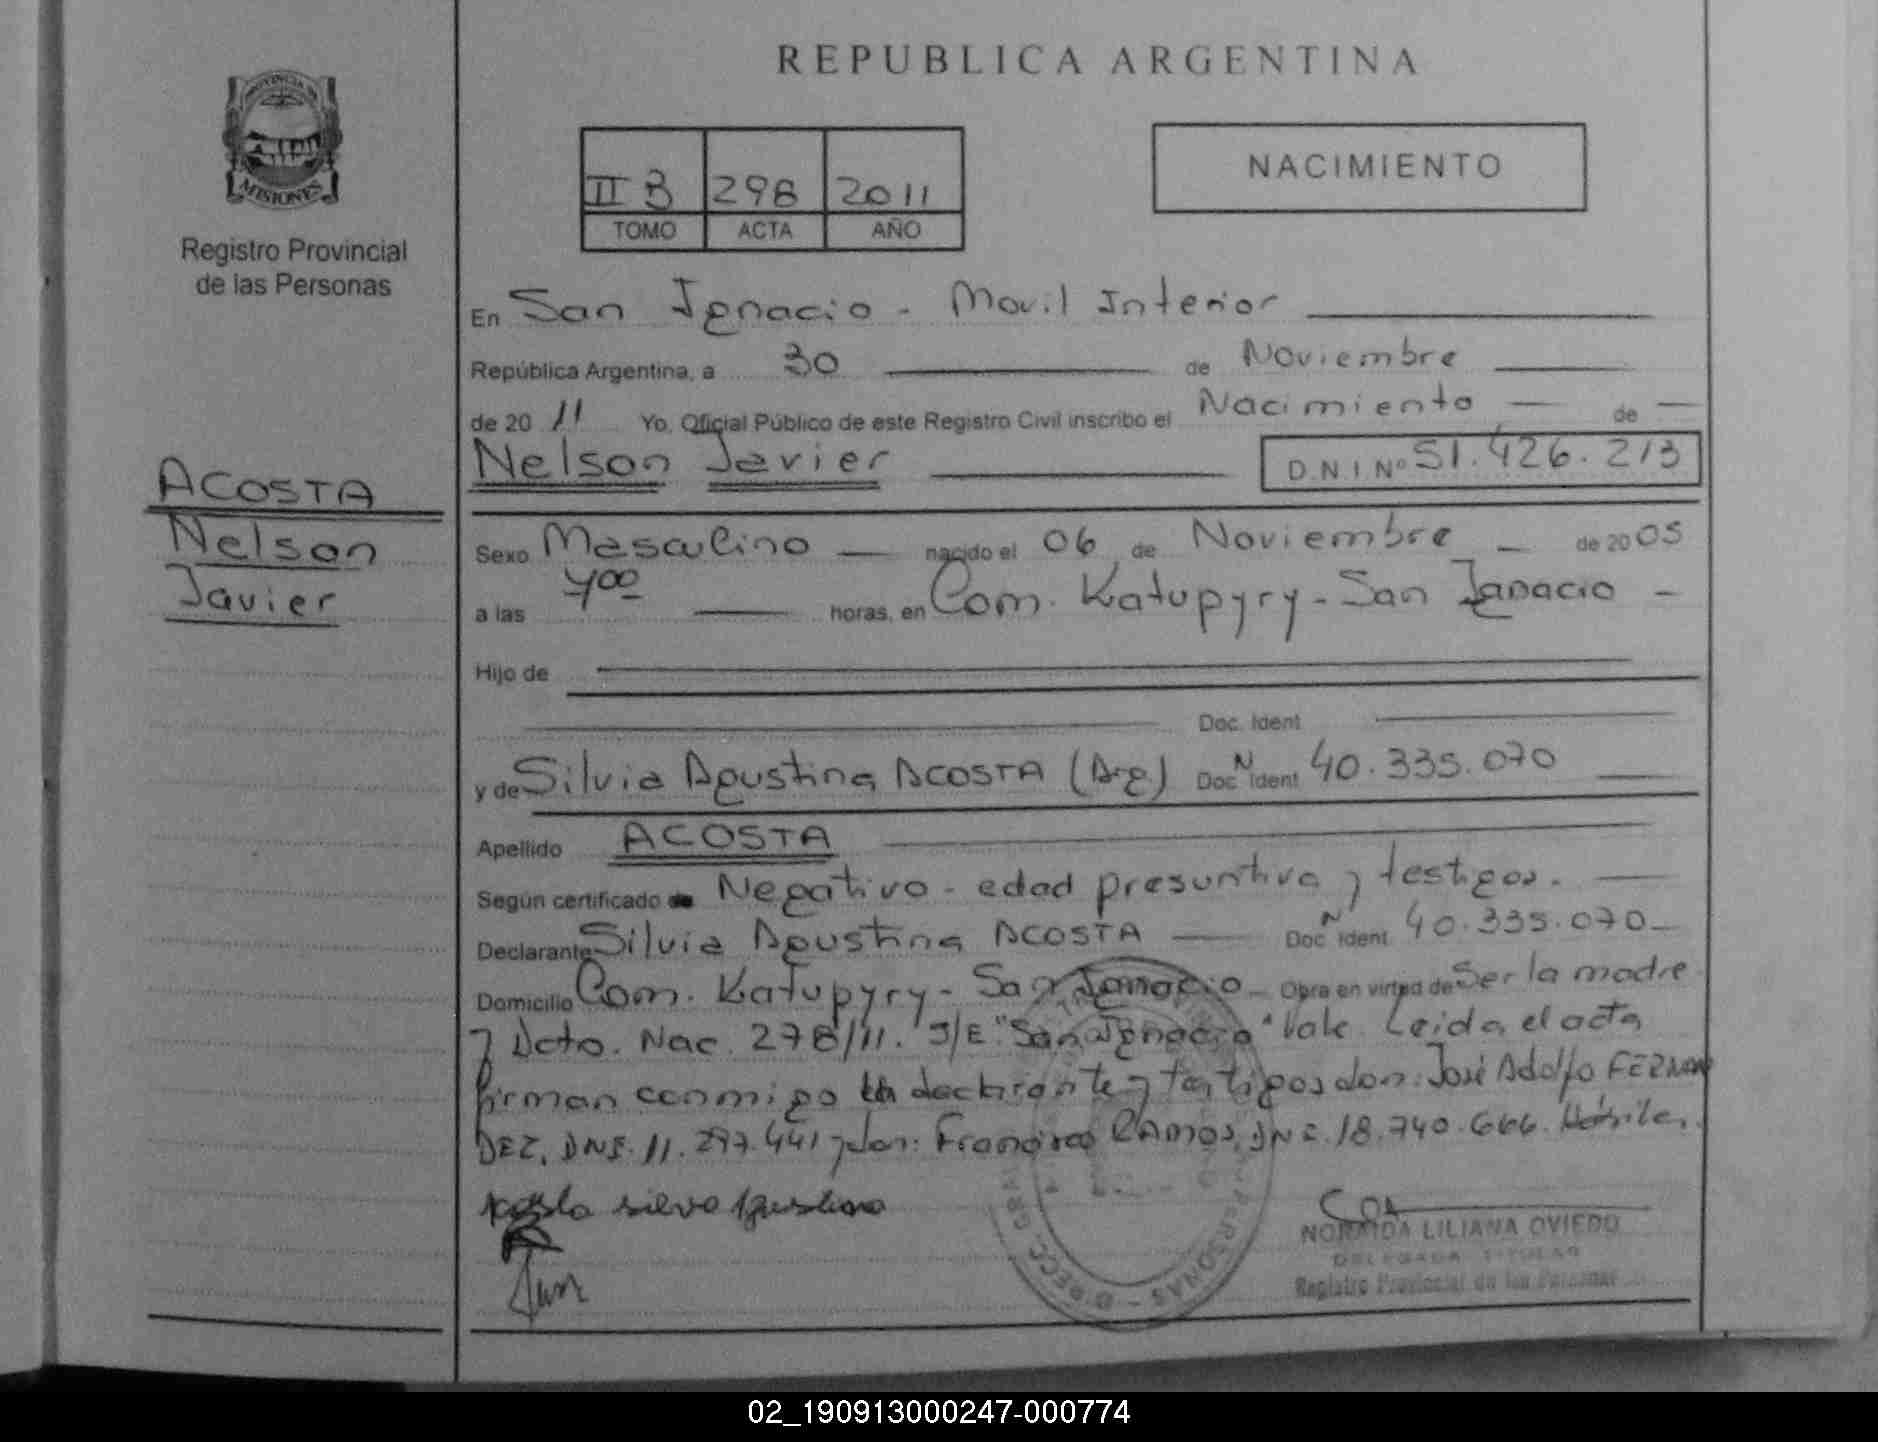 REPUBLICA ARGENTINA
PROVINCIA DE
MISIONES
Registro Provincial
de las Personas
II B 298 2011
TOMO ACTA AÑO
NACIMIENTO
En San Ignacio - Movil Interior
República Argentina, a 30 de Noviembre
de 2011 Yo, Oficial Público de este Registro Civil inscribo el Nacimiento de
Nelson Javier D.N.I. Nº 51.426.213
ACOSTA
Nelson
Javier
Sexo Masculino nacido el 06 de Noviembre de 2005
a las 7 00 horas, en Com. Katupyry - San Ignacio -
Hijo de
Doc. Ident
y de Silvia Agustina ACOSTA (Arg) Doc N Ident 40.335.070
Apellido ACOSTA
Según certificado de Negativo - edad presuntiva y testigos.
Declarante Silvia Agustina ACOSTA Doc N Ident 40.335.070
Domicilio Com. Katupyry - San Ignacio Obra en virtud de Ser la madre
y Dcto. Nac. 278/11. S/E "San Ignacio" Vale. Leida el acta
firman conmigo la declarante y testigos don: José Adolfo FERNAN
DEZ, DNI. 11.297.441 y don: Francisco RAMOS, DNI. 18.740.666.
Acosta silva Agustina
NORAIDA LILIANA OVIEDO
DELEGADA TITULAR
Registro Provincial de las Personas
PERSONAS - DIRECC. GRAL
02_190913000247-000774